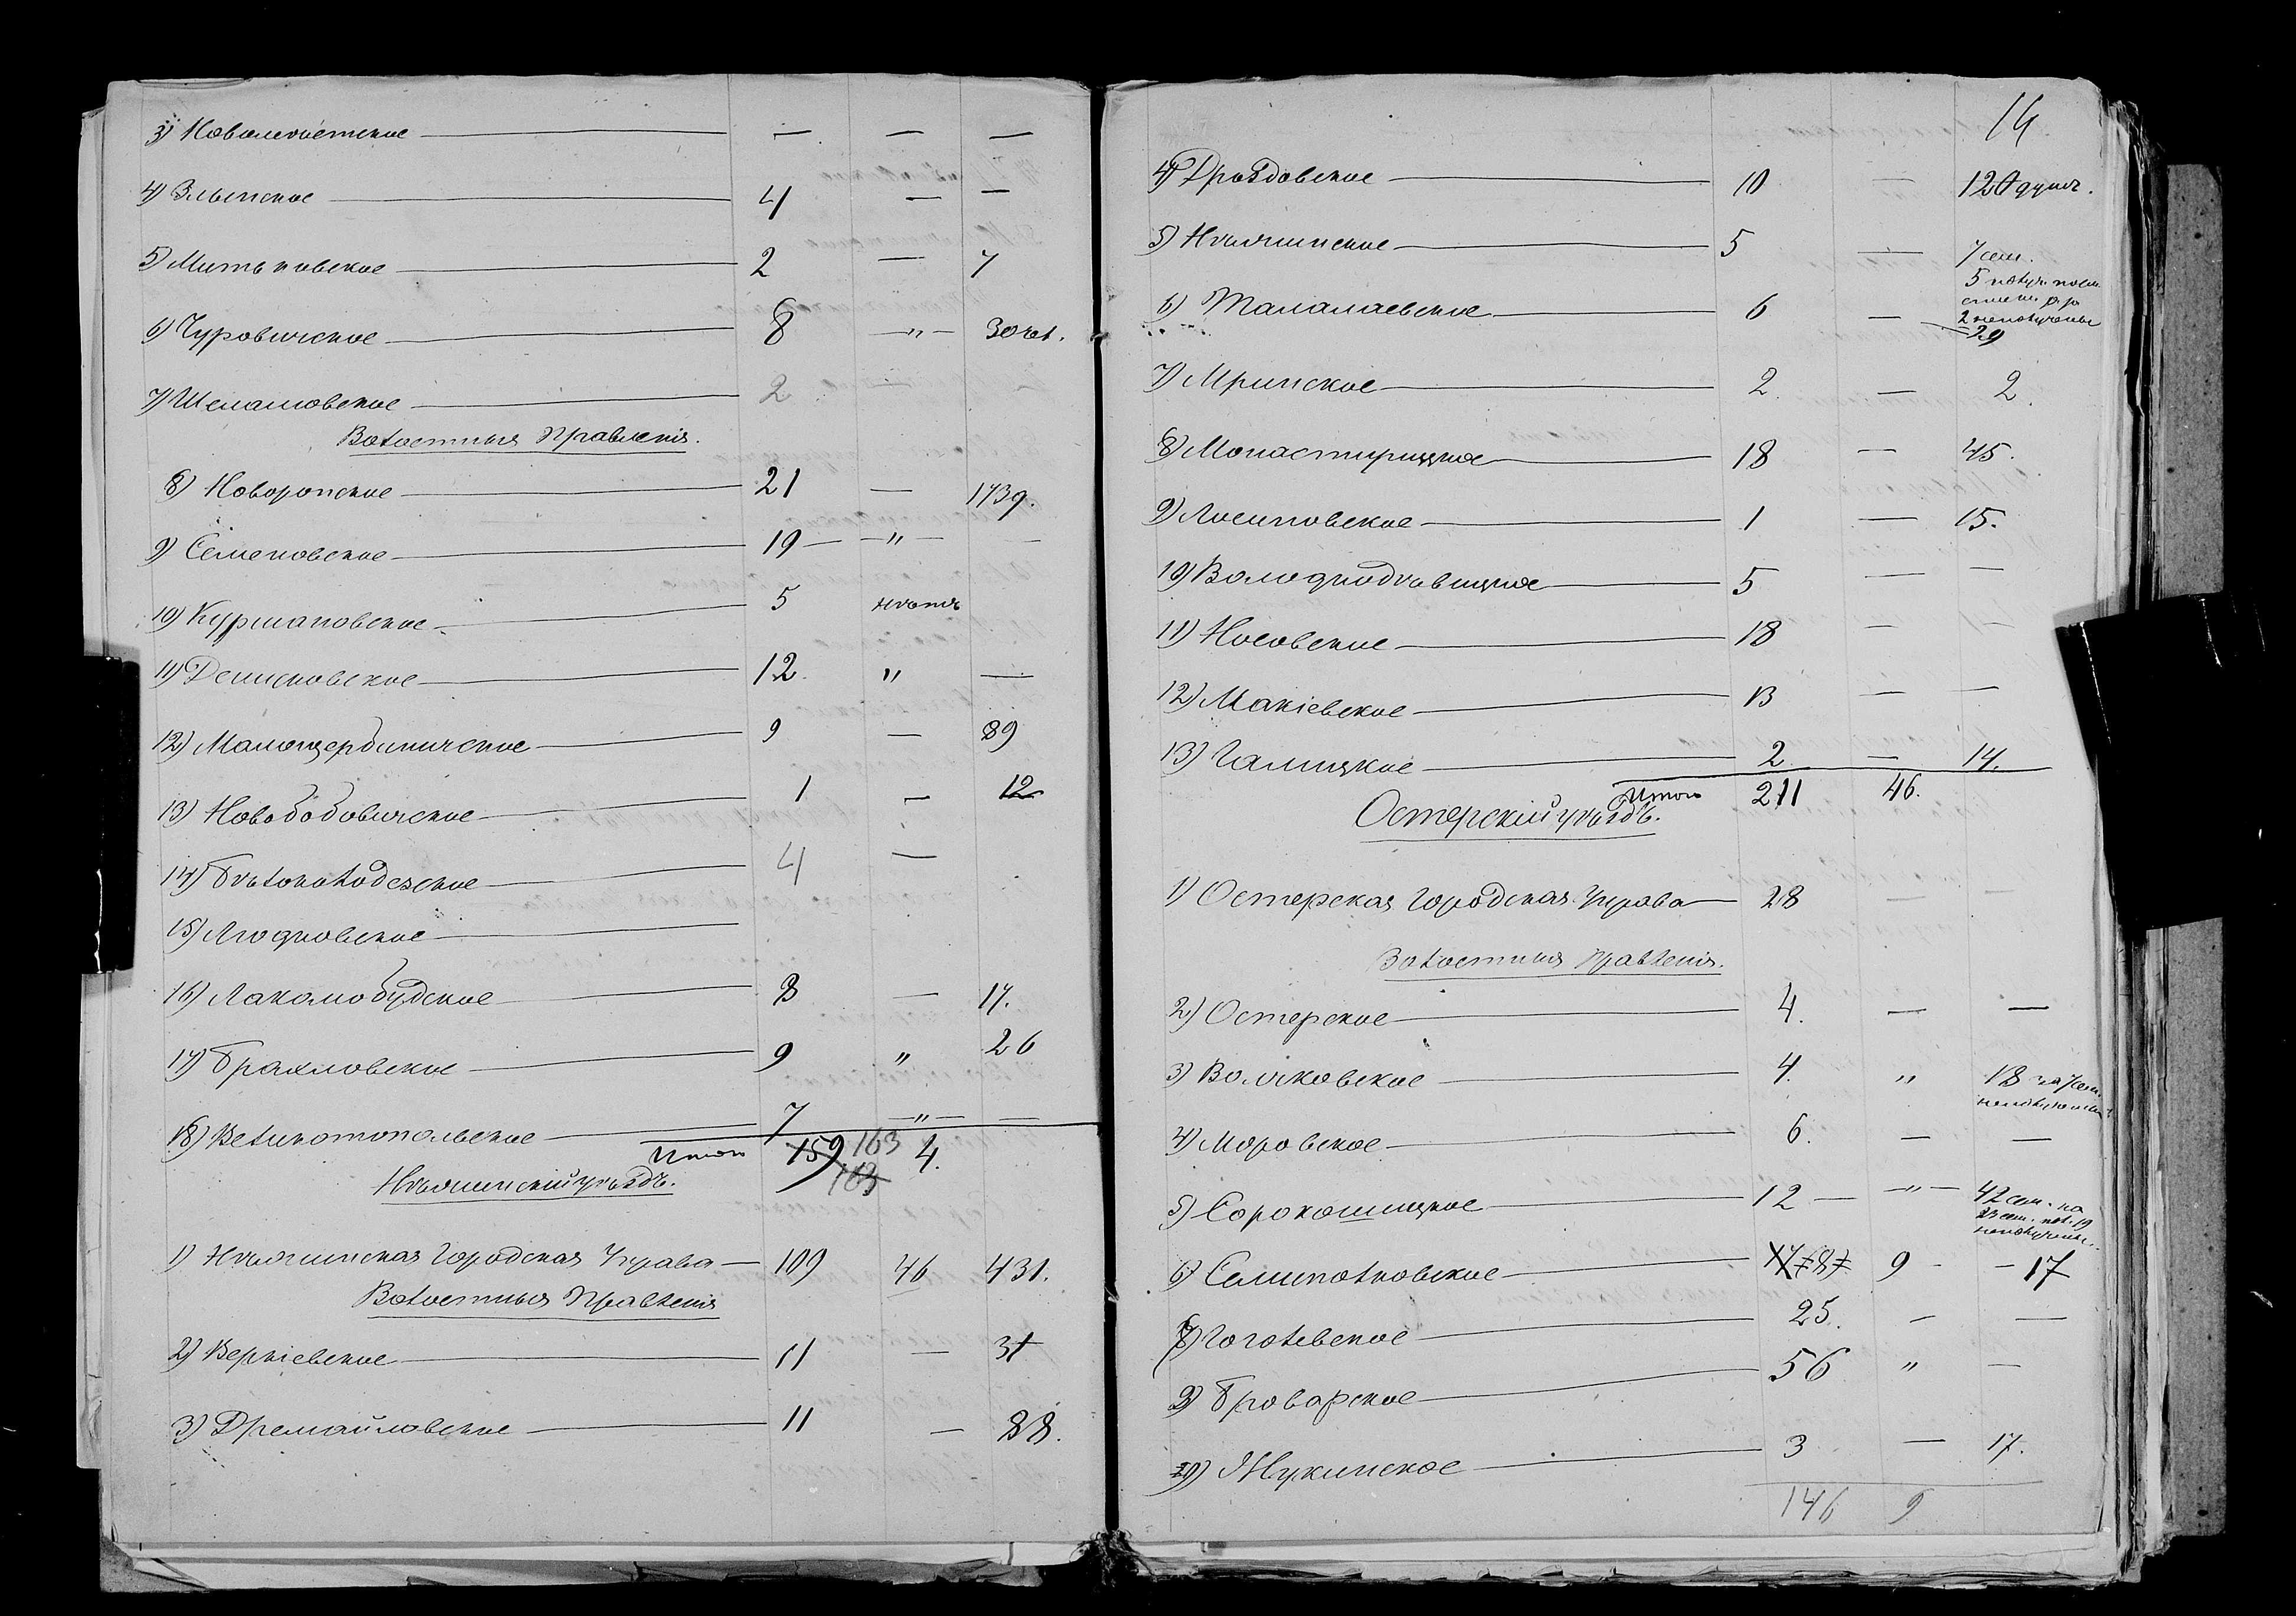 3) Новомѣстское — — — —
4) Злынское — 4 — —
5) Митьковское — 2 — 7
6) Чуровичское — 8 — " — 30 чел.
7) Шеламовское — 2
Волостныя Правленія.
8) Новоропское — 21 — 1739.
9) Семеновское — 19 — — " — —
10) Курмановское — 5 нѣтъ
11) Денисковское — 12. " —
12) Малощербиничское — 9 — 89
13) Новобобовичское — 1 — 12
14) Бѣлоколодезское — 4 —
15) Людковское —
16) Лакомобудское — 8 — 17.
17) Брахловское — 9 " 26
18) Великотопольское — 7 — " — —
Итого 159 163 163 4.
Нѣжинскій уѣздъ.
1) Нѣжинская Городская Управа — 109 46 431.
Волостныя Правленія
2) Веркіевское — 11 — 31
3) Дремайловское — 11 — 88.
14
4) Дроздовское — 10 — 120 душъ.
5) Нѣжинское — 5 — 7 сем.
5 получ.
6) Талалаевское — 6 — 2 неполучены
29
7) Мринское — 2. — 2.
8) Монастырищское — 18 — 45.
9) Лосиновское — 1 — 15.
10) Володькодѣвицкое — 5 — —
11) Носовское — 18 — —
12) Макіевское — 13 — —
13) Галицкое — 2 — 14.
Итого 211 46.
Остерскій уѣздъ.
1) Остерская Городская Управа — 28 — —
Волостныя Правленія.
2) Остерское — 4. — —
3) Волчковское — 4. " 18 на 7 сем.
4) Моровское — 6. — —
5) Сорокошицкое — 12 — — " — 42 сем. на
23 сем. пол. 19
неполучены.
6) Семиполковское — 9 — — 17
7) Гоголевское — 25. — —
Броварское — 56 " —
Жукинское — 3 — 17.
146 9